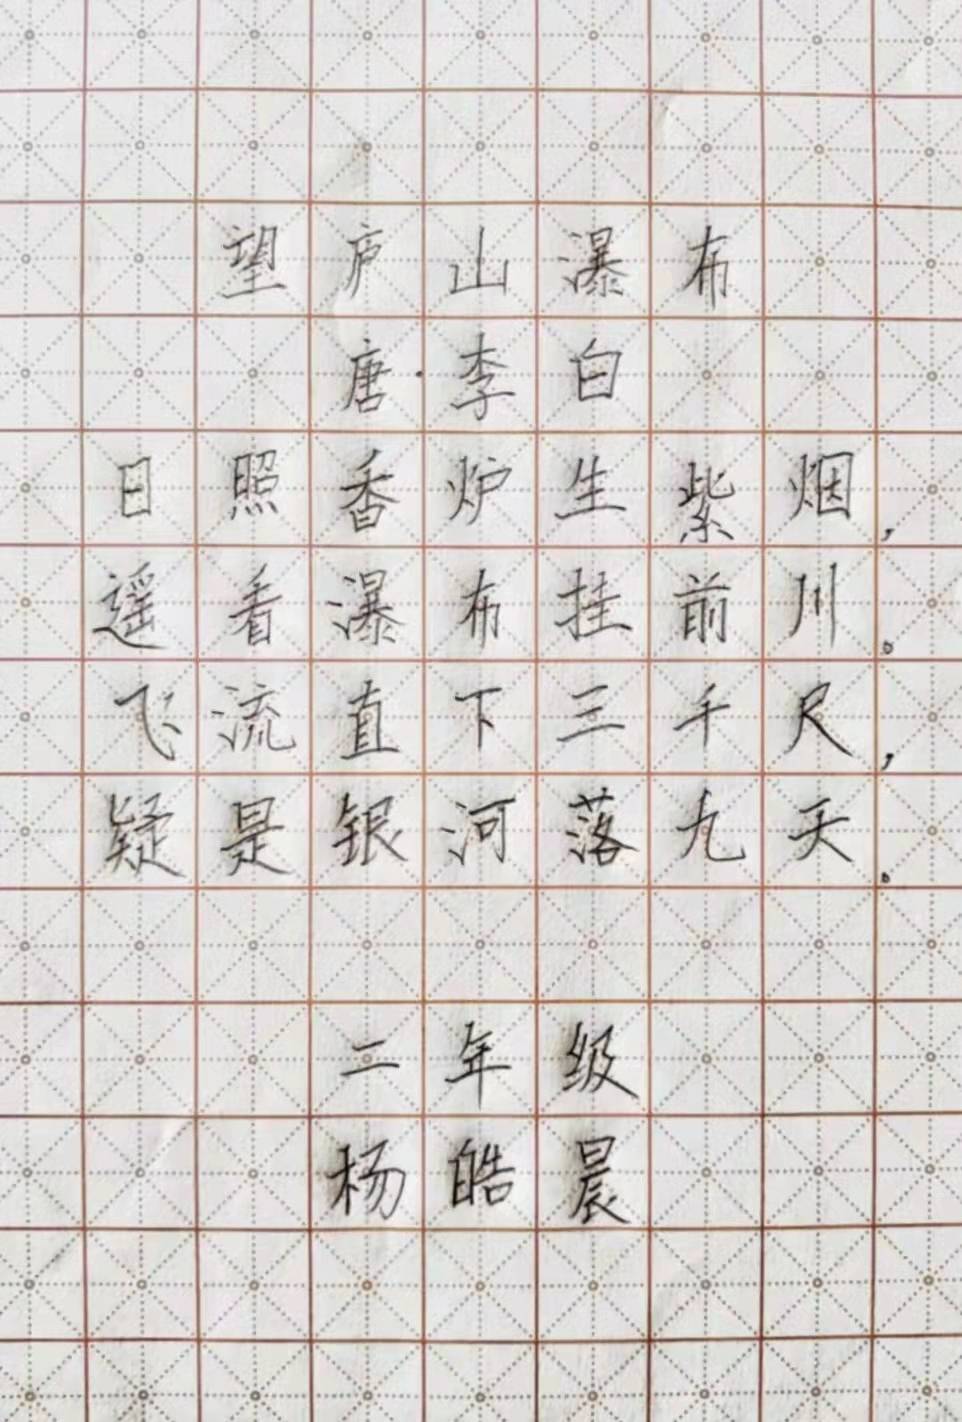 望庐山瀑布
唐·李白
日照香炉生紫烟，
遥看瀑布挂前川。
飞流直下三千尺，
疑是银河落九天。
二年级
杨皓晨